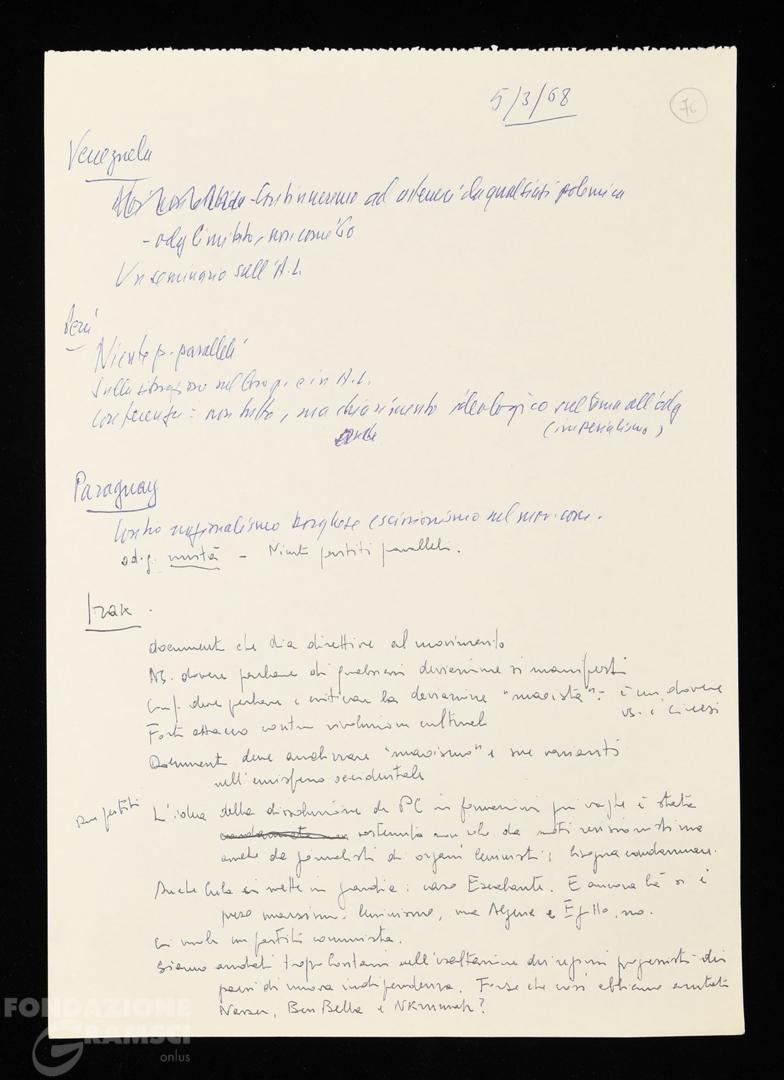 5/3/68
76
Venezuela
- Continueremo ad astenerci da qualsiasi polemica
- odg limitato, non
Un seminario sull'A.L.
Perù
Niente p. paralleli
Sulla situazione nel e in A.L.
Conferenza: non, ma chiarimento ideologico sul tema all'odg
(imperialismo)
Paraguay
Contro nazionalismo borghese e scissionismo nel mov. com.
od.g. unità - Niente partiti paralleli.
Irak.
documento che dia direttive al movimento
NB. dovere parlare di qualsiasi deviazione si manifesti
Conf. deve parlare e criticare la deviazione "maoista": è un dovere
vs. i Cinesi
Forte attacco contro rivoluzione culturale
Documento deve analizzare "maoismo" e sue varianti
nell'emisfero occidentale
Sui partiti
L'idea della dissoluzione dei PC in formazioni più vaghe è stata
sostenuta non solo da noti revisionisti ma
anche da giornalisti di organi leninisti; bisogna condannare.
Anche Cuba ci mette in guardia: caso Escalante. E ancora là si è
preso marxismo-leninismo, ma Algeria e Egitto, no.
Ci vuole un partito comunista.
Siamo andati troppo lontani nell'esaltazione dei regimi progressisti dei
paesi di nuova indipendenza. Forse che così abbiamo aiutato
Nasser, Ben Bella e Nkrumah?
FONDAZIONE
GRAMSCI
onlus